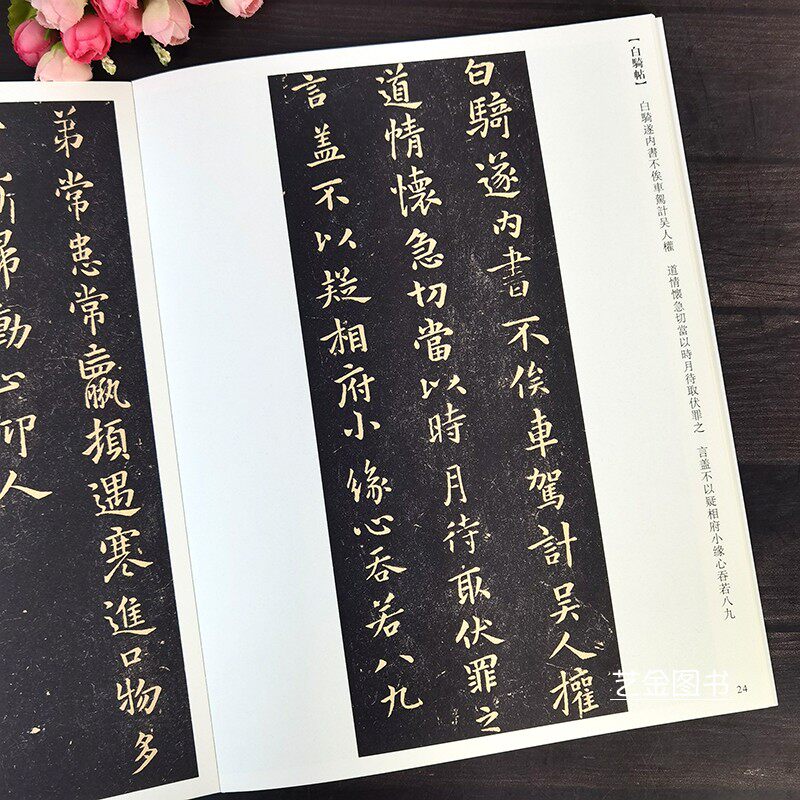 【白騎帖】 白騎遂内書不俟車駕計吴人權 道情懷急切當以時月待取伏罪之 言盖不以疑相府小缘心吞若八九
白騎遂内書不俟車駕計吴人權
道情懷急切當以時月待取伏罪之
言盖不以疑相府小缘心吞若八九
24
弟常患常羸頓遇寒進口物多
歸動心仰人
艺金图书